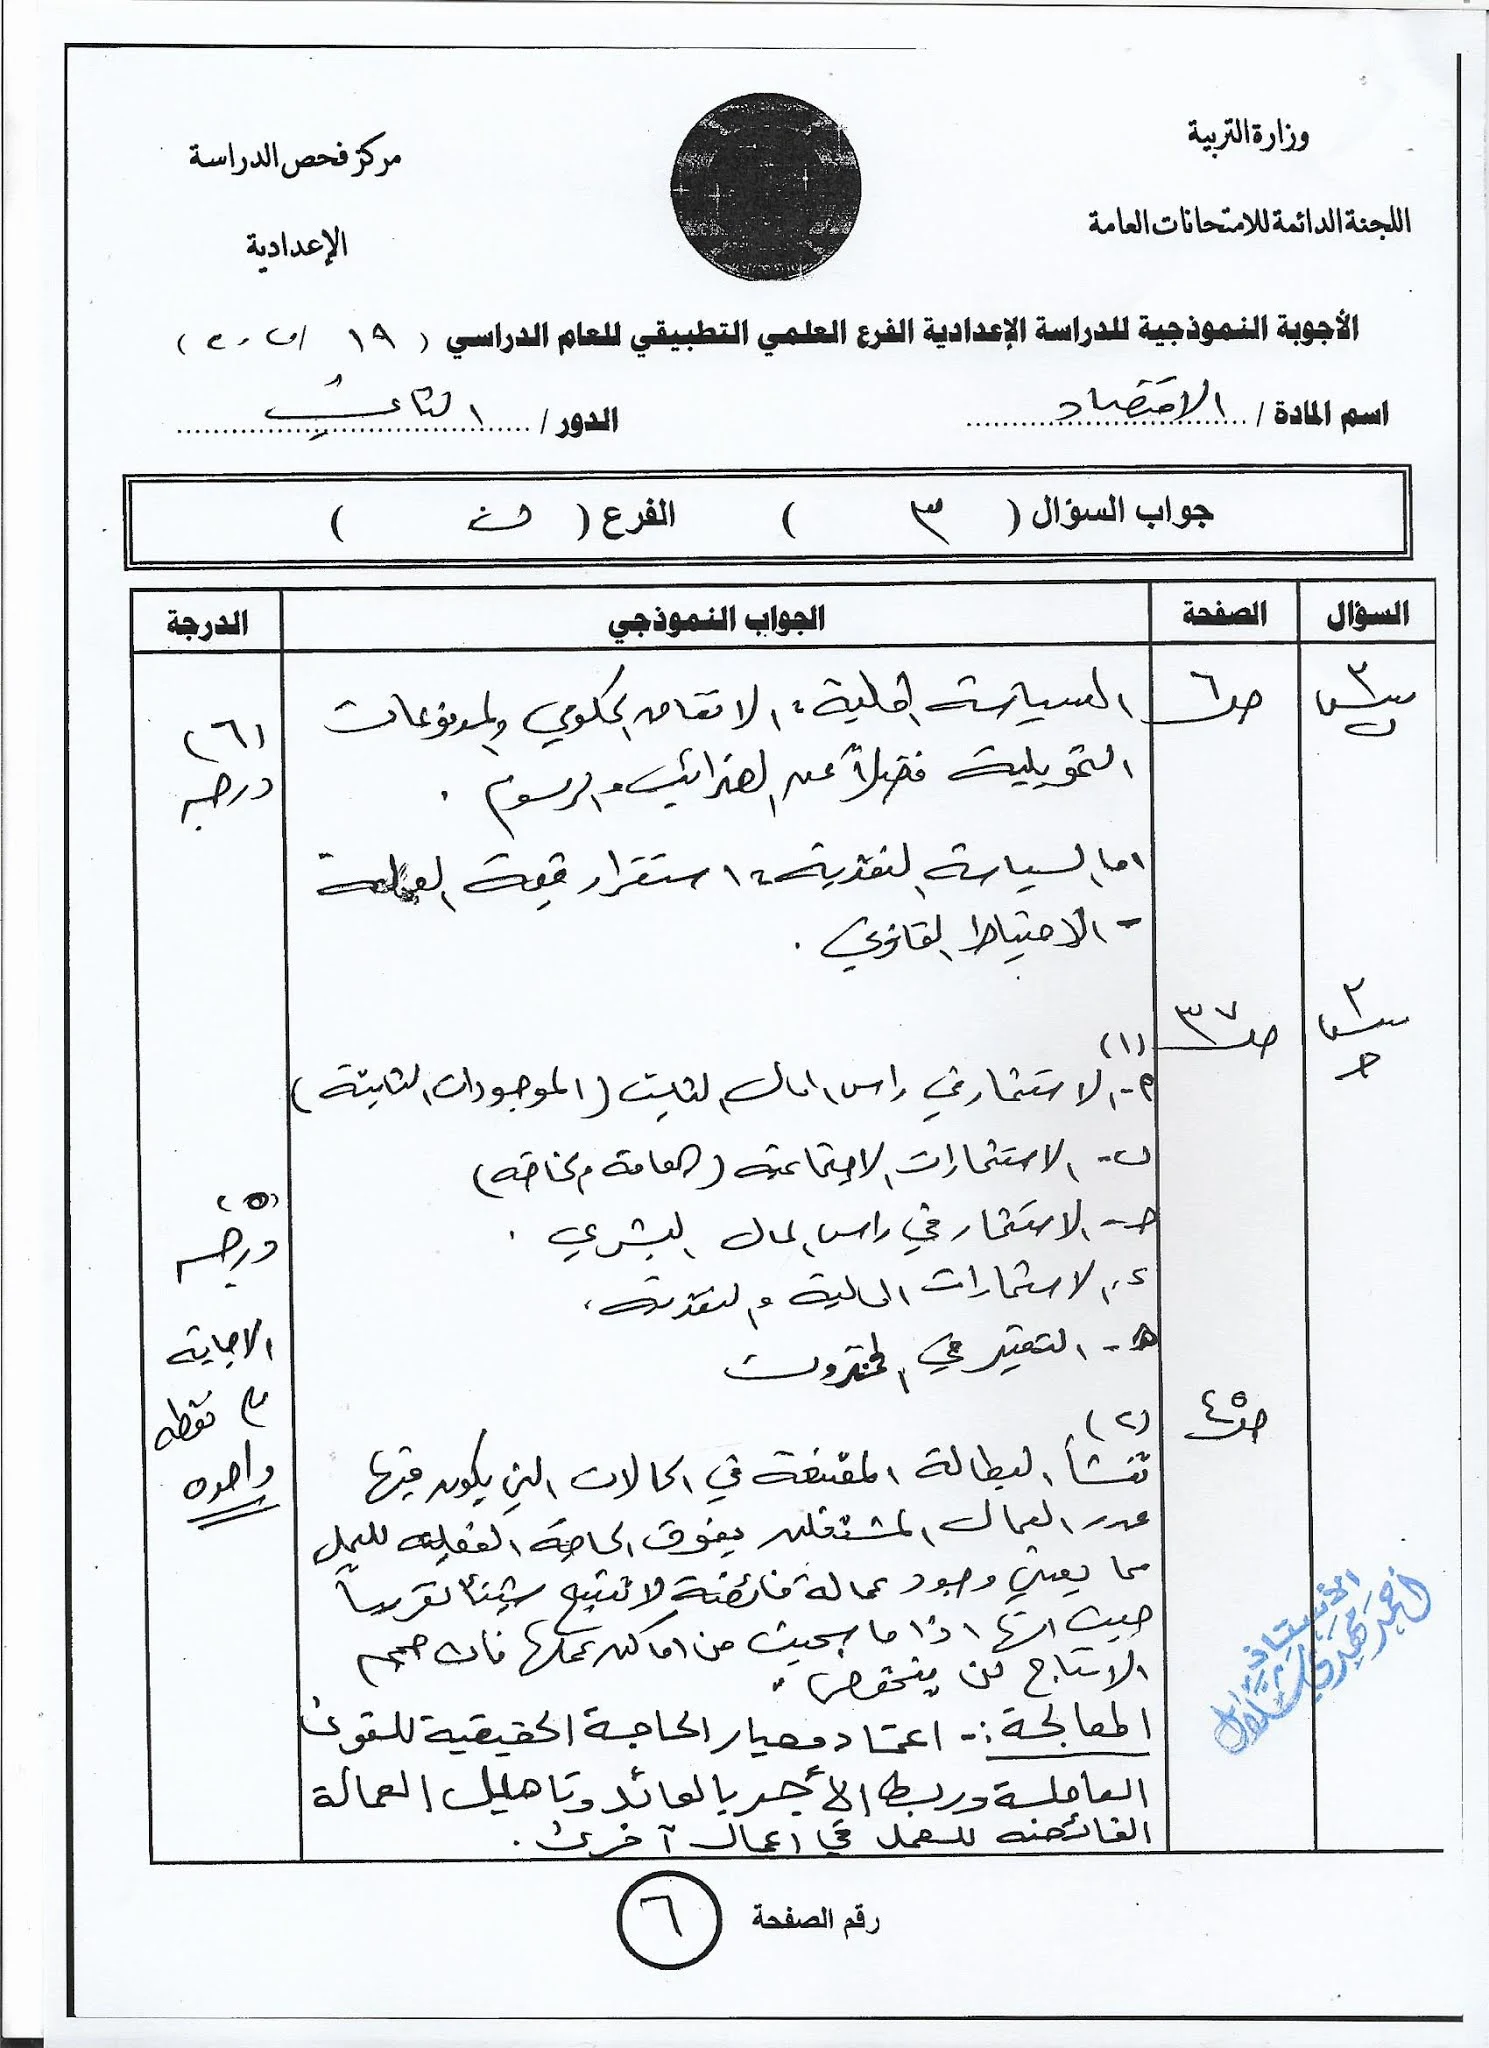 وزارة التربية
اللجنة الدائمة للامتحانات العامة
مركز فحص الدراسة
الإعدادية
الأجوبة النموذجية للدراسة الإعدادية الفرع العلمي التطبيقي للعام الدراسي ( ١٩
اسم المادة / الاقتصاد
الدور / الثاني
جواب السؤال ( ٣ ) الفرع ( )
السؤال الصفحة الجواب النموذجي الدرجة
س٣ ص٦ السياسة المالية: الانفاق الحكومي والمدفوعات
التحويلية فضلاً عن الضرائب والرسوم .
(٦)
درجة
اما السياسة النقدية: استقرار قيمة العملة
- الاحتياط القانوني .
س٣
ح
ص٣٧
(١)
أ- الاستثمار في راس المال الثابت (الموجودات الثابتة)
ب- الاستثمارات الاجتماعية (العامة والخاصة)
ح- الاستثمار في راس المال البشري .
د- الاستثمارات المالية والنقدية .
هـ- التغير في المخزون
(٥)
درجة
الاجابة
نقطه
واحده
ص٤٥
(٢)
تنشأ البطالة المقنعة في الحالات التي يكون فيها
عدد العمال المشتغلين يفوق الحاجة الفعلية للعمل
مما يعني وجود عمالة فائضة لا تنتج شيئاً تقريباً
حيث انها اذا ما سحبت من اماكن عملها فان حجم
الانتاج لن ينخفض .
المعالجة :- اعتماد معيار الحاجة الحقيقية للقوى
العاملة وربط الأجر بالعائد وتاهيل العمالة
الفائضه للعمل في اعمال آخرى .
الأستاذ
احمد حميد
رقم الصفحة ٦